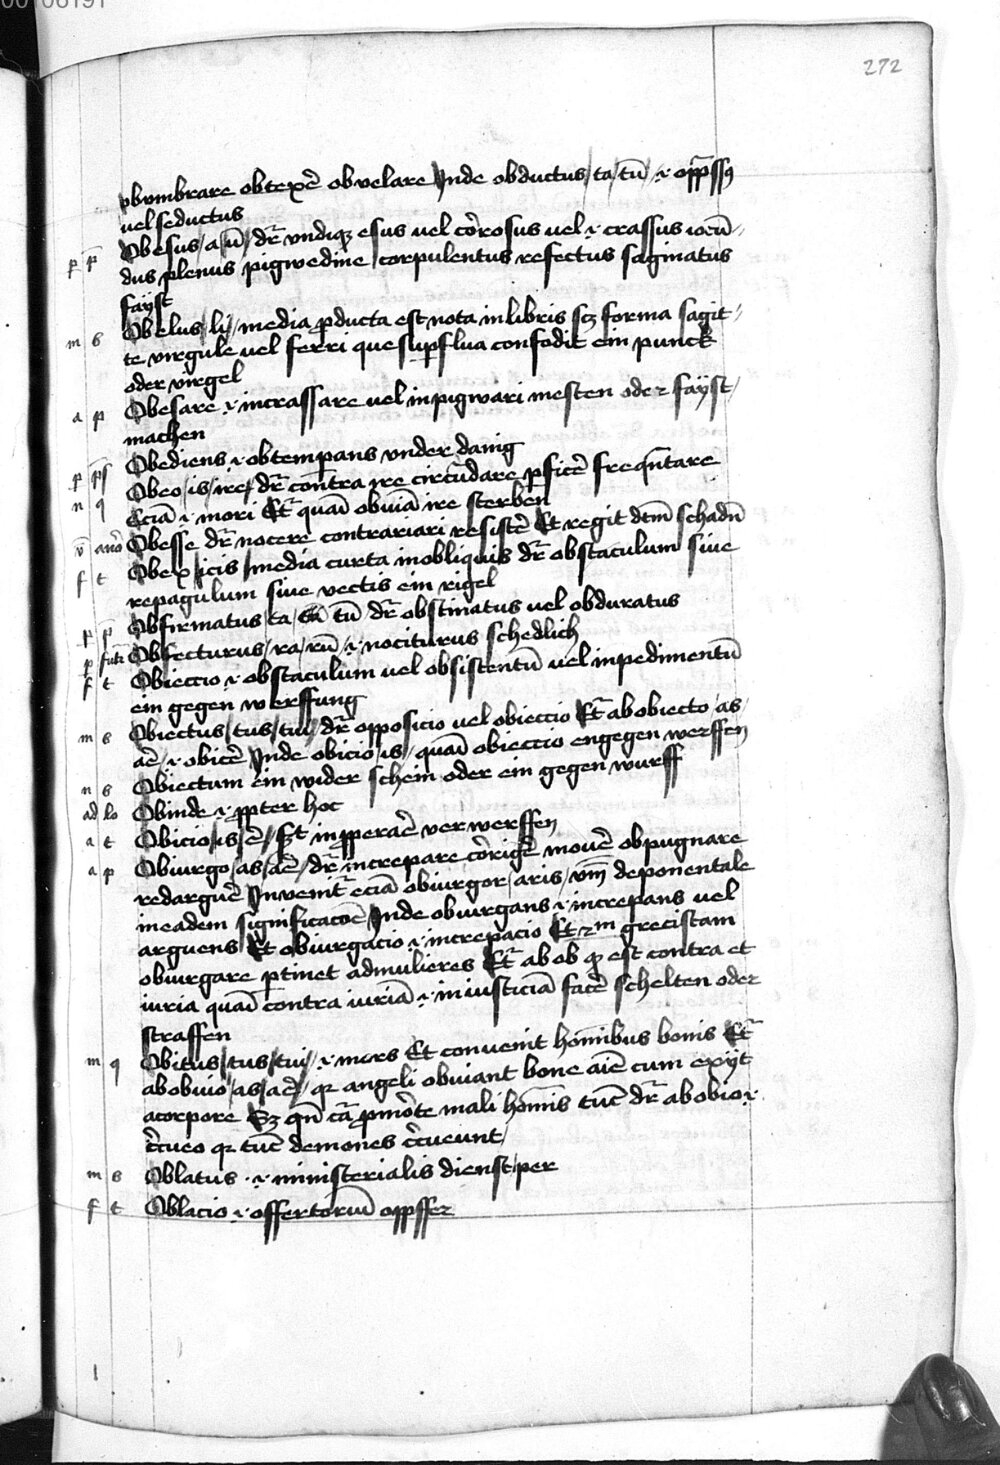 00106191
272
obvmbrare obtexē obvelare Inde obductus / ta / tū / ·i· opp̄ssꝯ
uel seductus
p p Obesus / a / ū / dr̄ vndiqꝫ esus uel cōrosus uel ·i· crassus iocū-
dus plenus pigwedine corpulentus refectus saginatus
fayst
m s Obelus / li / media ꝓducta est nota in libris sꝫ forma sagit-
te virgule uel ferri que suꝑflua confodit ein punck
oder virgel
a p Obesare ·i· incrassare uel inpigwari mesten oder fayst-
machen
p pn̄s Obediens ·i· obtemꝑans vnder danig
n q Obeo / is / ire / dr̄ contra ire circūdare ꝑficē freqn̄tare
Eciā ·i· mori Et̄ quasi obuiā ire sterben
v̄ ano Obesse dr̄ nocere contrariari resistē Et regit dtm̄ schadn̄
f t Obex icis media curta in obliquis dr̄ obstaculum siue
repagulum siue vectis ein rigel
p p Obfirmatus / ta / tū dr̄ obstinatus uel obduratus
p futr̄ Obfecturus / ra / rū ·i· nociturus schedlich
f t Obieccio ·i· obstaculum uel obsistentū uel inpedimentū
ein gegen werffung
m s Obiectus / tus / tui / dr̄ opposicio uel obieccio Et̄ ab obiecto / as /
aē / ·i· obicē Inde obicio / is / quasi obieccio engegen werffen
n s Obiectum ein wider schein oder ein gegen wurff
ad lo Obinde ·i· ꝓpter hoc
a t Obicio / is / ē / Et inproperaē verwerffen
a p Obiurgo / as / aē / dr̄ increpare cōrigē mouē obpugnare
redarguē Inuenit̄ eciā obiurgor / aris / vm̄ deponentale
in eadem significacōe Inde obiurgans ·i· increpans uel
arguens Et obiurgacio ·i· increpacio Et 2m grecistam
obiurgare ꝑtinet ad mulieres Et̄ ab ob qꝫ est contra et
iuria quasi contra iuriā ·i· iniusticiā facē schelten oder
straffen
m q Obitus / tus / tui / ·i· mors Et conuenit hoīnibus bonis Et̄
ab obuio / as / aē / qꝛ angeli obuiant bone aīe cum exijt
a corpore Sꝫ qn̄ cā ꝓ mōte mali hoīnis tūc dr̄ ab obio ·i·
c̄cueo qꝛ tūc demones c̄cueunt /
m s Oblatus ·i· ministerialis dienstper
f t Oblacio ·i· offertoriū oppffer